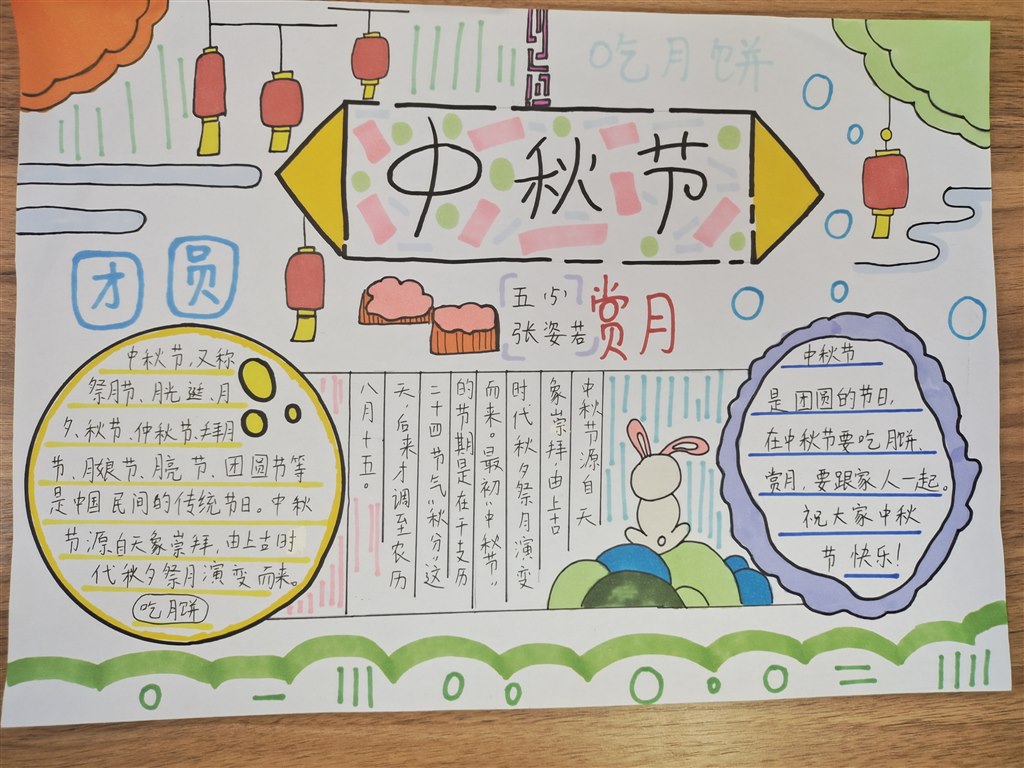 吃月饼
中秋节
团圆
五(5)
张姿若
赏月
中秋节,又称
祭月节、月光诞、月
夕、秋节、仲秋节、拜月
节、月娘节、月亮节、团圆节等
是中国民间的传统节日。中秋
节源自天象崇拜,由上古时
代秋夕祭月演变而来。
吃月饼
中秋节源自天
象崇拜,由上古
时代秋夕祭月演变
而来。最初“中秋节”
的节期是在干支历
二十四节气“秋分”这
天,后来才调至农历
八月十五。
中秋节
是团圆的节日,
在中秋节要吃月饼、
赏月,要跟家人一起。
祝大家中秋
节快乐!